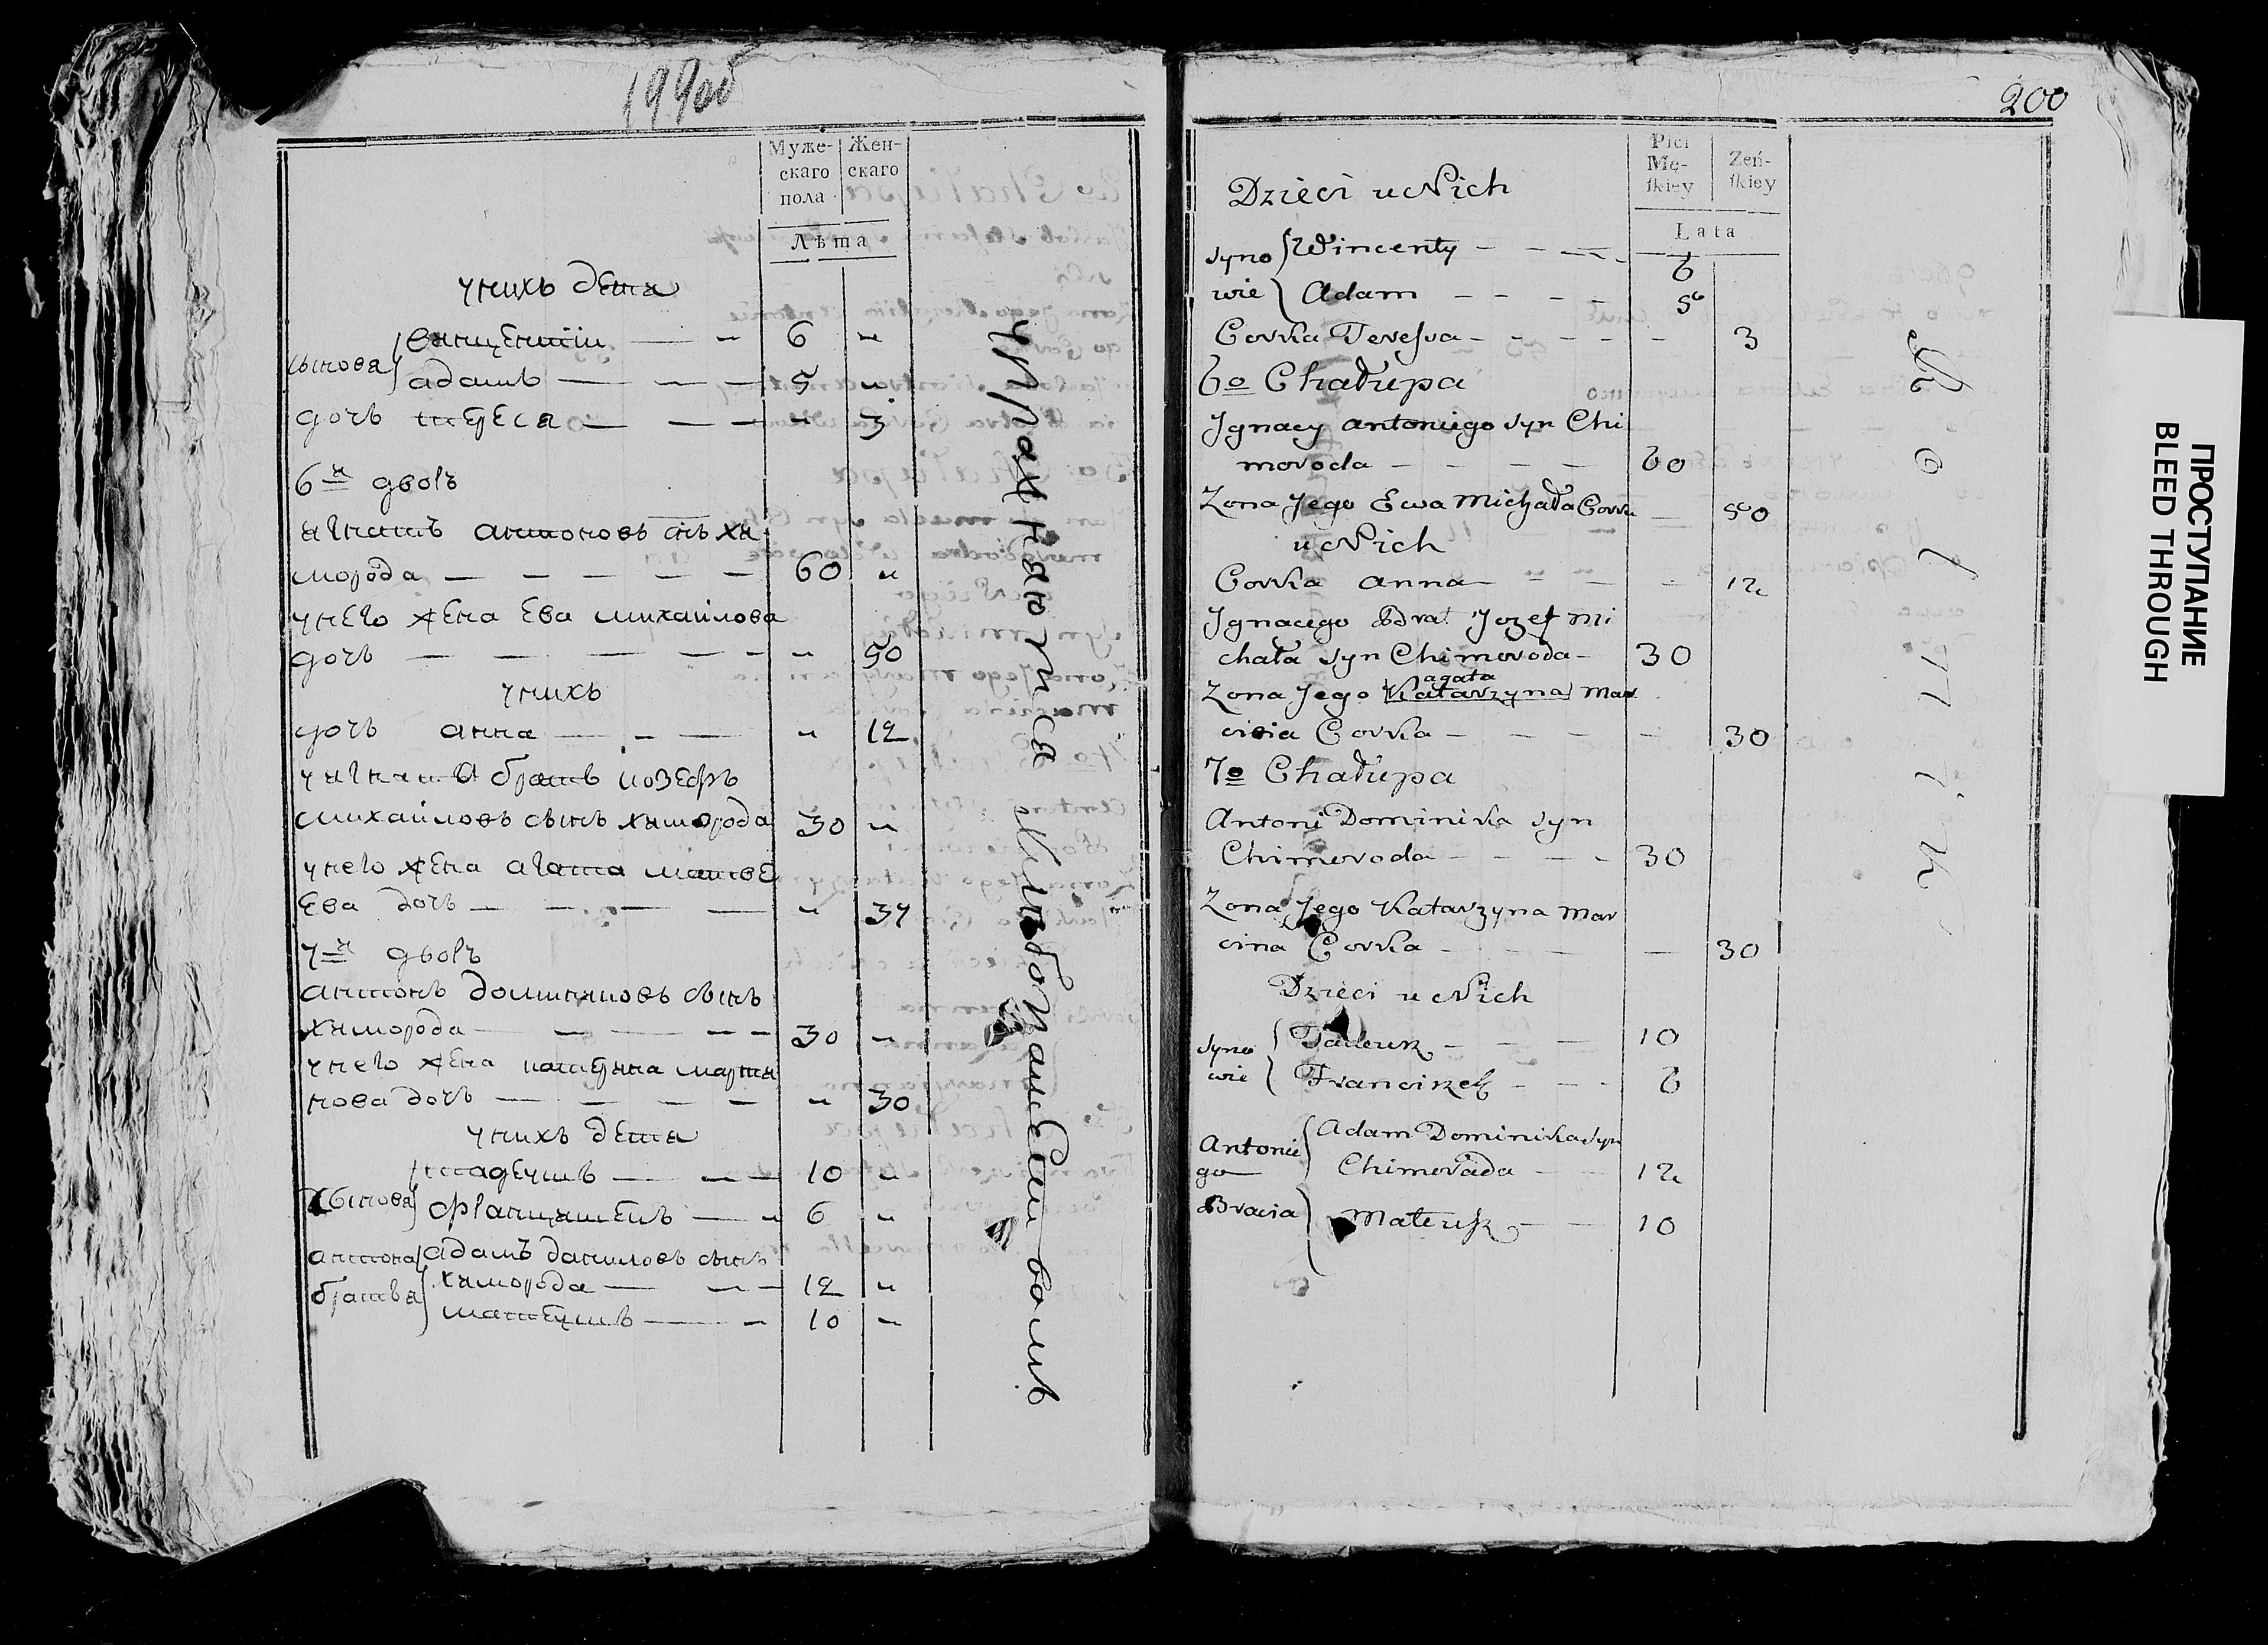 199об
Муже-
скаго
пола
Жен-
скаго
Лѣта
у нихъ дети
сынова
винцентiй — — 6 „
адамъ — — — 5 „
дочь тереса — — — „ 3
6й дворъ
игнатъ антоновъ снъ хи
морода — — — — — 60 „
у него жена Ева михайлова
дочь — — — — — „ 50
у нихъ
дочь анна — — — „ 12
у игната братъ иозефъ
михайловъ сынъ химорода 30 „
у него жена агата матве
ева дочь — — — — „ 34
7й дворъ
антонъ доминиковъ сынъ
химорода — — — — — 30 „
у него жена катерина марти
нова дочь — — — — „ 30
у нихъ дети
сынова
тадеушъ — — — 10 „
францишекъ — „ 6 „
антона
братья
адамъ даниловъ сынъ
химорода — — — 12 „
матеушъ — — 10 „
упражняются
хлебопашествомъ
200
Dzieci u Nich
Płci
Mę-
skiey
Żeń-
skiey
Lata
Syno
wie
Wincenty — — — — 6
Adam — — — — 5
Corka Teressa — — — — — 3
6o Chałupa
Ignacy Antoniego syn Chi
moroda — — — — 60
Zona Jego Ewa Michała Corka — 50
u Nich
Corka Anna — — — — 12
Ignacego Brat Jozef Mi
chała syn Chimoroda — 30
agata
Zona Jego Katarzyna Mar
cina Corka — — — — — 30
7o Chałupa
Antoni Dominika syn
Chimoroda — — — — 30
Zona Jego Katarzyna Mar
cina Corka — — — — — 30
Dzieci u Nich
Syno
wie
Tadeusz — — — 10
Franciszek — — — 6
Antonie
go
Bracia
Adam Dominika syn
Chimoroda — — 12
Mateusz — — 10
ПРОСТУПАНИЕ
BLEED THROUGH